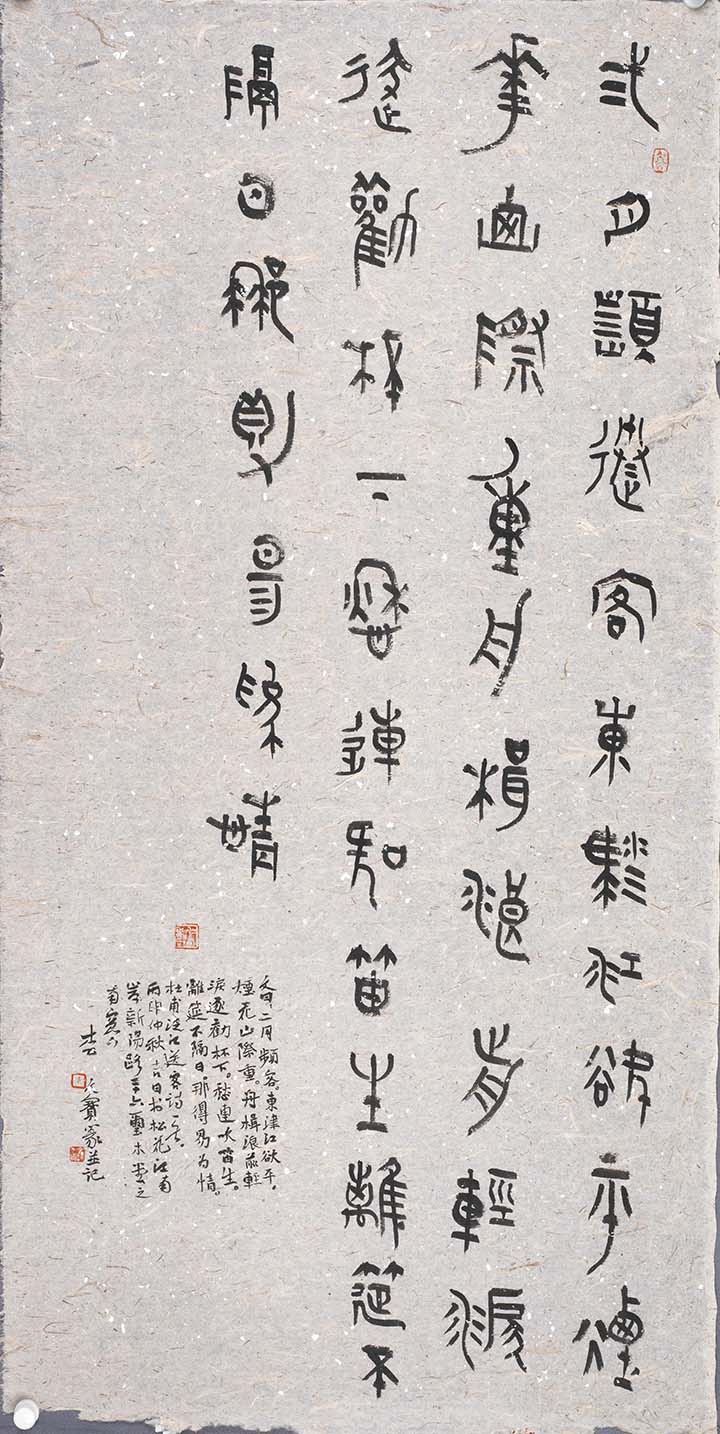 弍月頻送客東津江欲平煙
華山際重舟楫浪前輕淚
逐勸杯下愁連吹笛生離筵不
隔日那得易為情
文曰二月頻客。東津江欲平。
煙花山際重。舟楫浪前輕
淚逐勸杯下。愁連吹笛生。
離筵不隔日。那得易為情。
杜甫泛江送客詩一首
丙申仲秋吉日於松花江南
岸新陽路木堂之
南窗下
寶篆並記